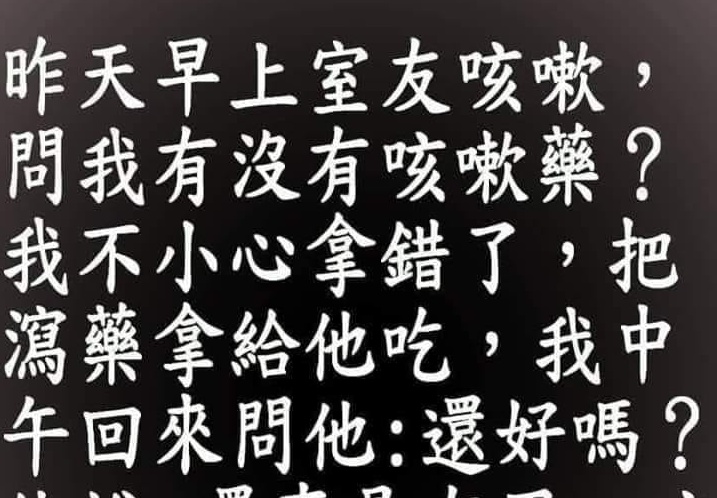 昨天早上室友咳嗽，
問我有沒有咳嗽藥？
我不小心拿錯了，把
瀉藥拿給他吃，我中
午回來問他:還好嗎？